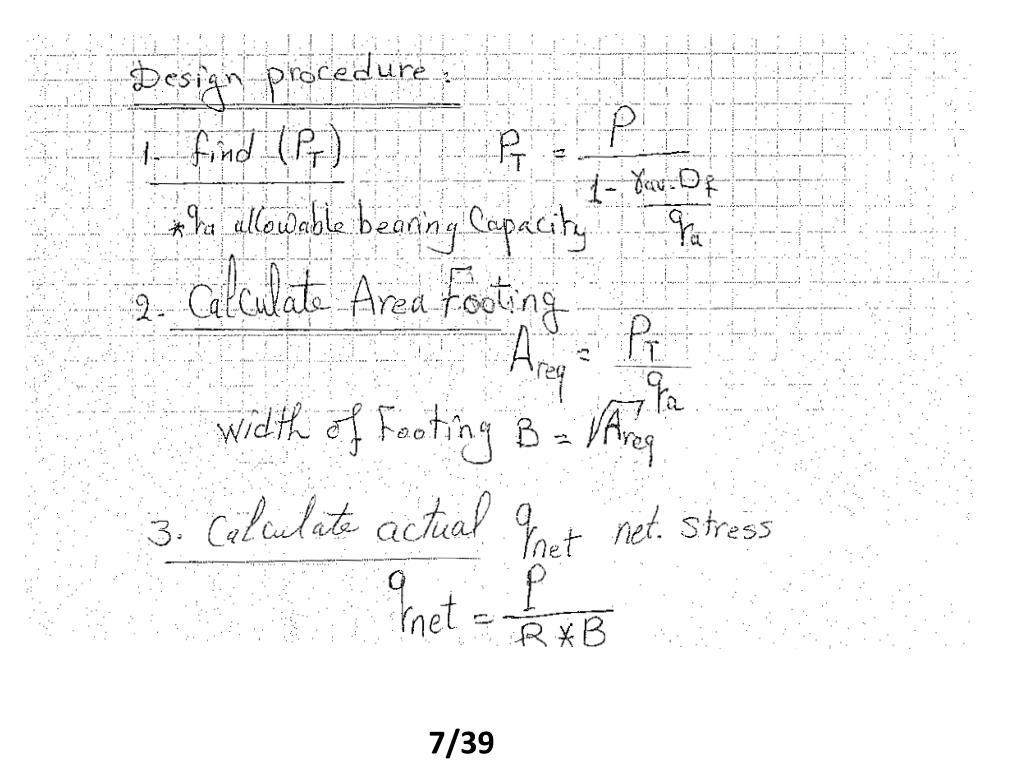 Design procedure :
1- find (P_T) P_T = P / (1 - γav. D_f / q_a)
* q_a allowable bearing Capacity
2- Calculate Area Footing
A_req = P_T / q_a
width of Footing B = √A_req
3. Calculate actual q_net net. stress
q_net = P / B * B
7/39